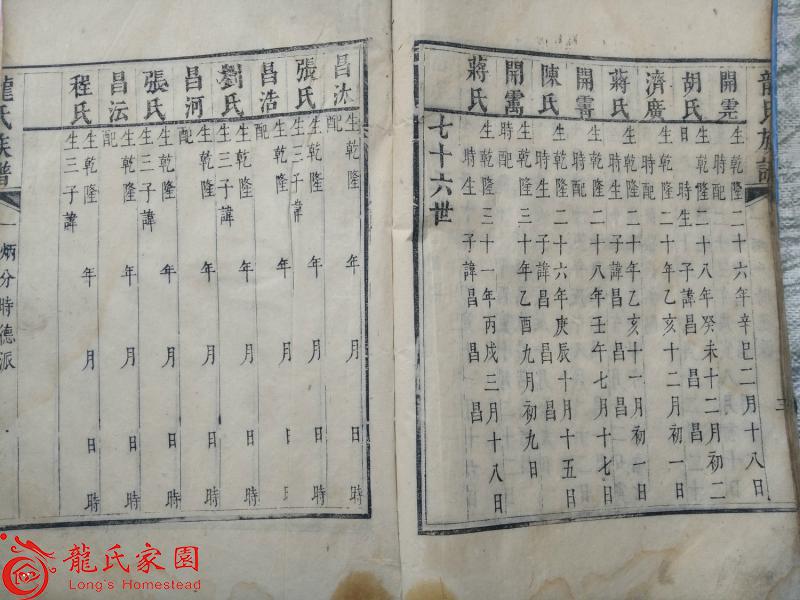 龍氏族譜
三
開雲
生乾隆二十六年辛巳二月十八日
時配
胡氏
生乾隆二十八年癸未十二月初二
日 時生 子諱昌 昌
濟廣
生乾隆二十年乙亥十二月初一日
時配
蔣氏
生乾隆二十年乙亥十一月初一日
時生 子諱昌 昌
開雩
生乾隆二十八年壬午七月十七日
時配
陳氏
生乾隆二十六年庚辰十月十五日
時生 子諱昌 昌
開霱
生乾隆三十年乙酉九月初九日
時配
蔣氏
生乾隆三十一年丙戌三月十八日
時生 子諱昌 昌
七十六世
昌汰
生乾隆 年 月 日 時
配
張氏
生乾隆 年 月 日 時
生三子諱
昌浩
生乾隆 年 月 日
配
劉氏
生乾隆 年 月 日 時
生三子諱
昌河
生乾隆 年 月 日 時
配
張氏
生乾隆 年 月 日 時
生三子諱
昌沄
生乾隆 年 月 日 時
配
程氏
生乾隆 年 月 日 時
生三子諱
龍氏族譜
一炳分時德派
龍氏家園
Long's Homestead